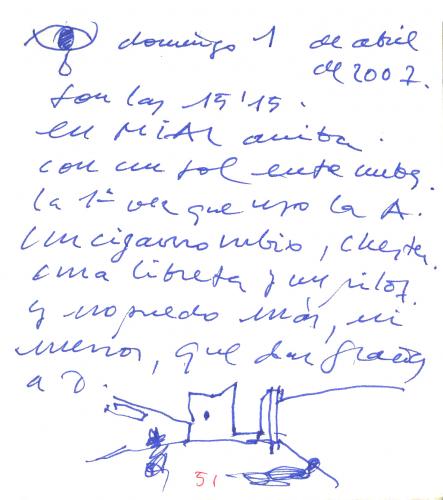 domingo 1 de abril
de 2007.
Son las 15'15.
en MIAL arriba.
con un sol entre nubes.
la 1ª vez que uso la A.
Un cigarro rubio, Chester,
una libreta y un pilot,
y no puedo más, ni
menos, que dar gracias
a D.
51